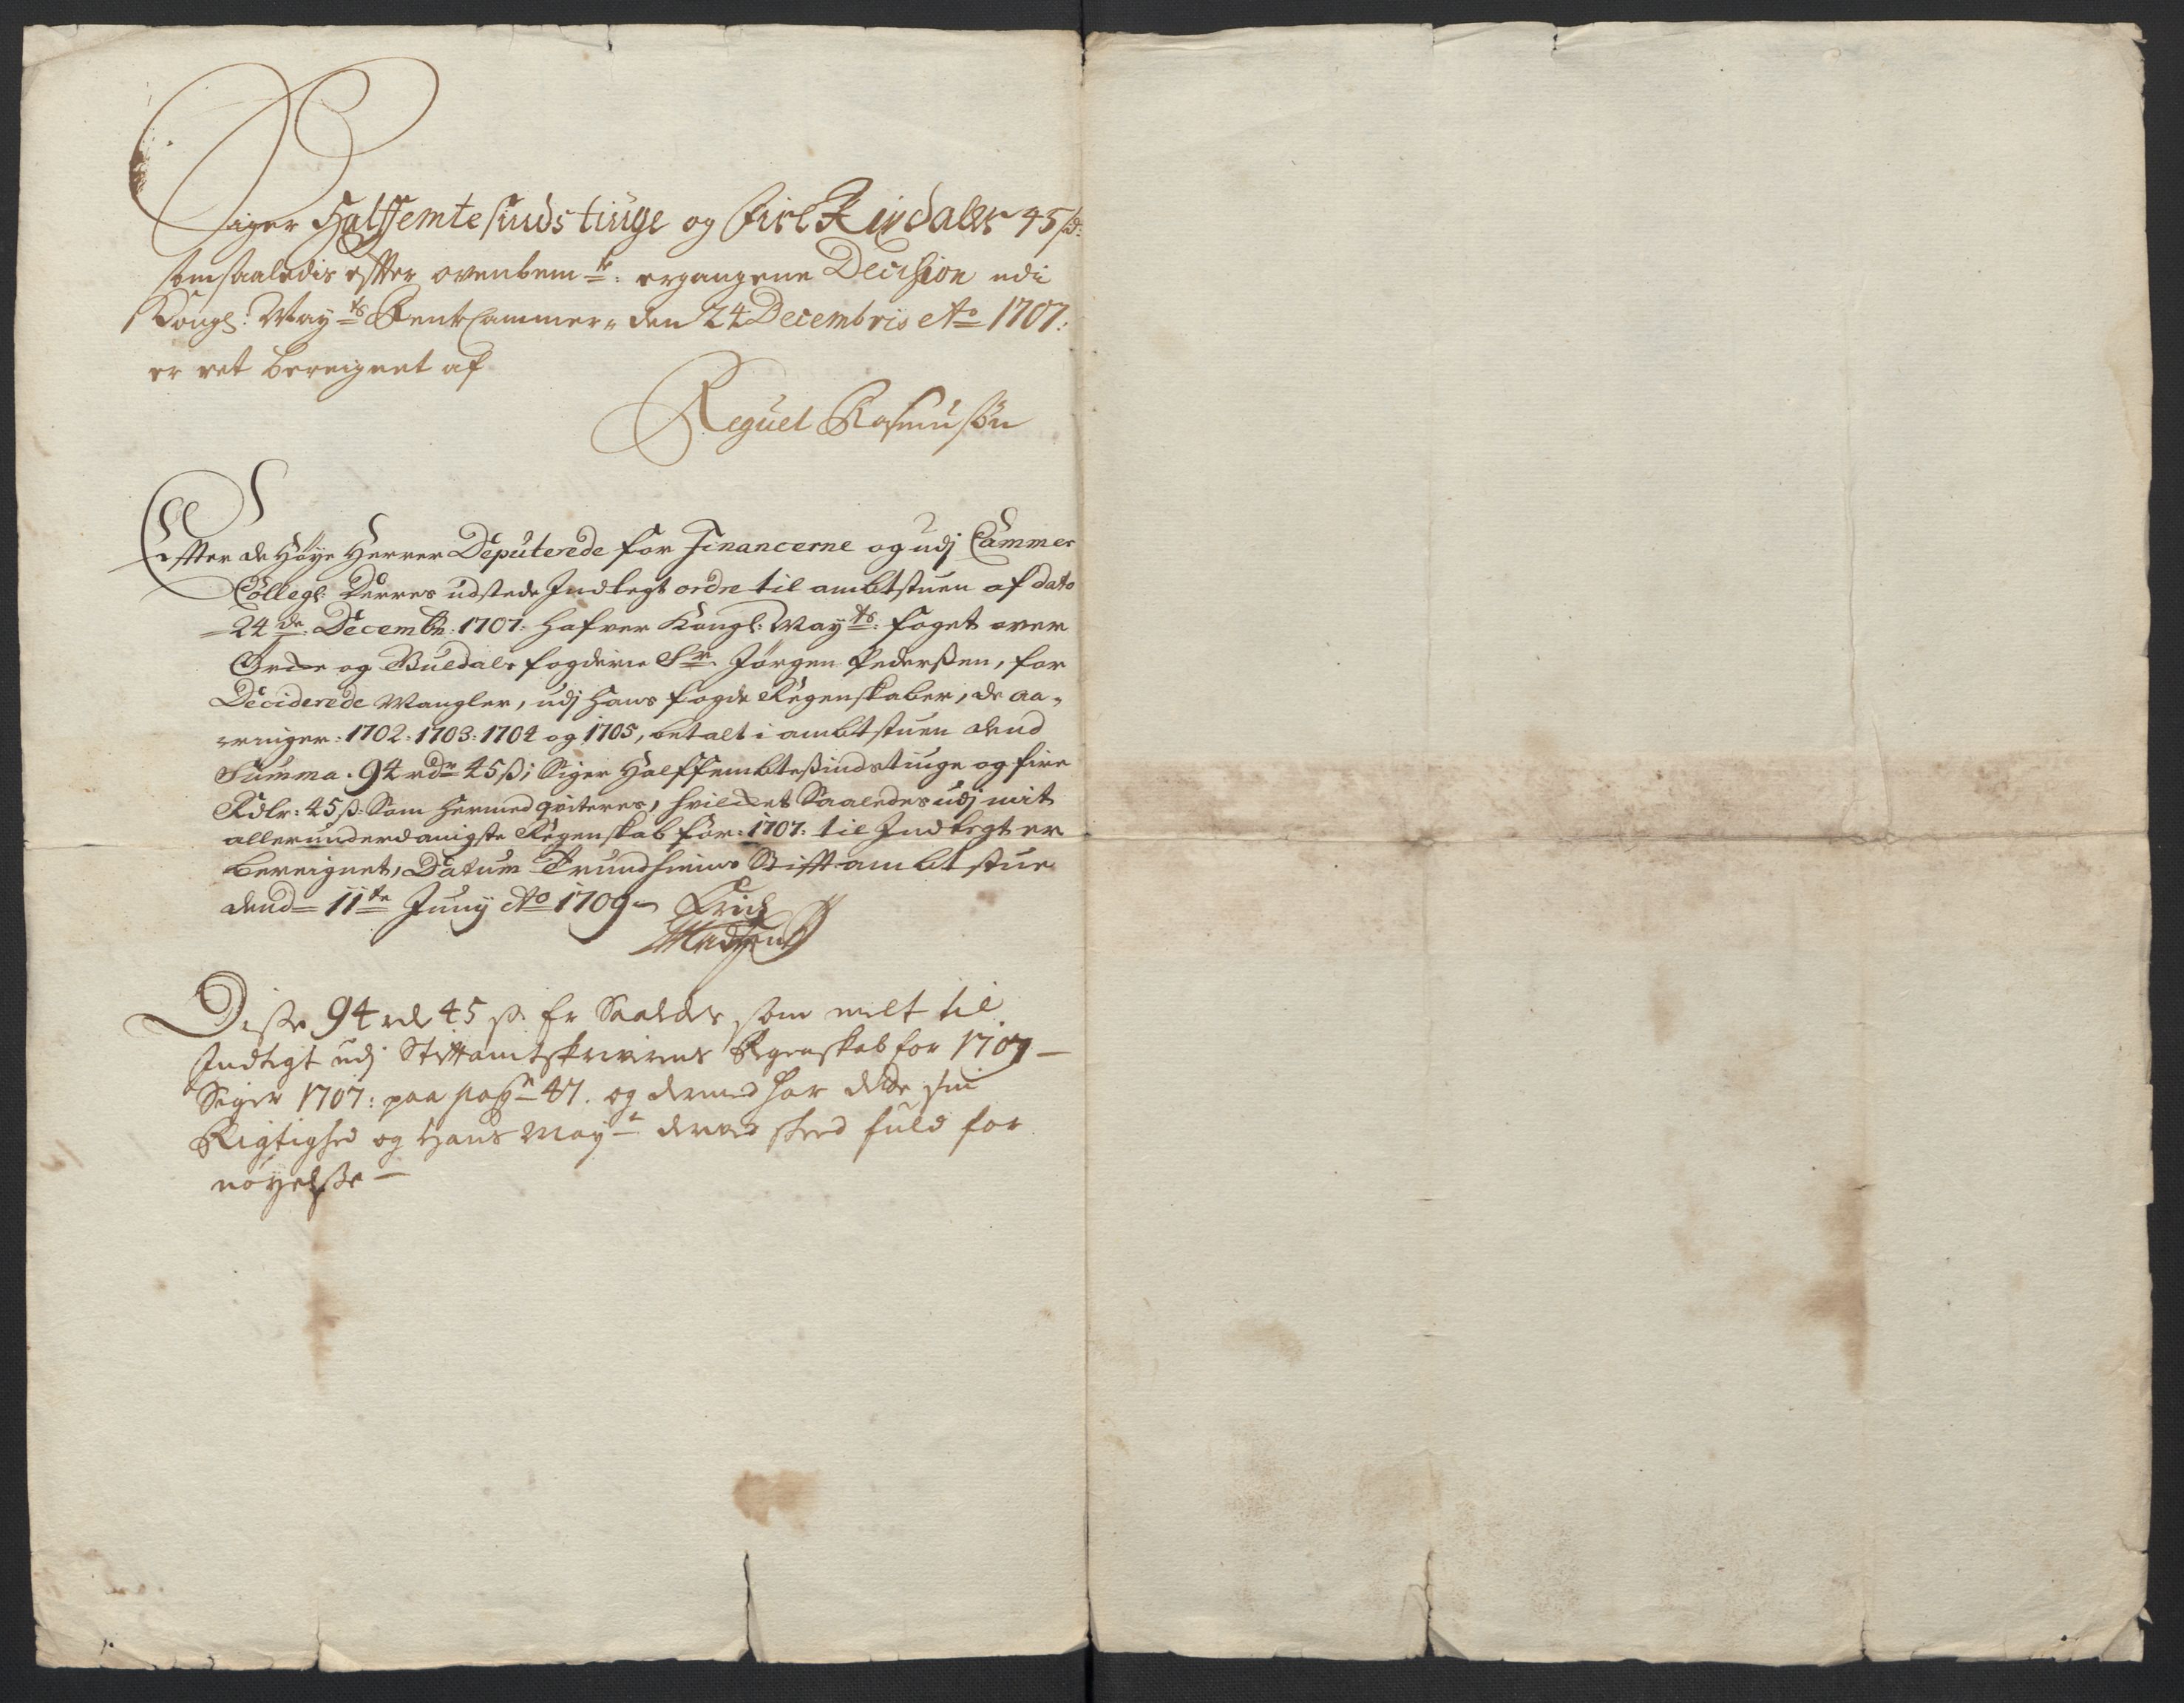 Siger Halffemtesinds tiuge og fire Rixdaler 45 sk:
som saaledis effter ovenbemte: ergangene Decision udi
Kongl: Mayts RentCammer, den 24 Decembris Ao 1707:
er ret bereignet af
Reguel Rasmusßøn
Effter de Høÿe Herrer Deputerede for Financerne og udj Cammer
Collegi Derres udstede Indtegt ordre til ambtstuen af dato
24de: Decembr: 1707: hafver Kongl: Mayts: foget over
Orche og Guldals fogderie Sr. Jørgen Pederßen, for
Deciderede Mangler, udj hans fogde Regenskaber, de aa-
ringer: 1702: 1703: 1704 og 1705, betalt i ambtstuen dend
Summa. 94 rdr 45 ß; Siger Halffembteßindstiuge og fire
Rdlr: 45 ß: Som hermed qviteres, hvilchet Saaledes udj mit
allerunderdanigste Regenskab for: 1707: til Indtegt er
bereignet, Datum Trundhiems Stifftambtstue
dend 11te Junij Ao 1709 Erich
Madßen
Diße 94 rd 45 ß. Er Saaledes som melt til
Indtegt udj Stiftamtskrivrens Regenskab for 1707
Siger 1707: paa pag 47. og dermed har dette sin
Rigtighed og Hans Mayt derved skeed fuld for
nøyelße